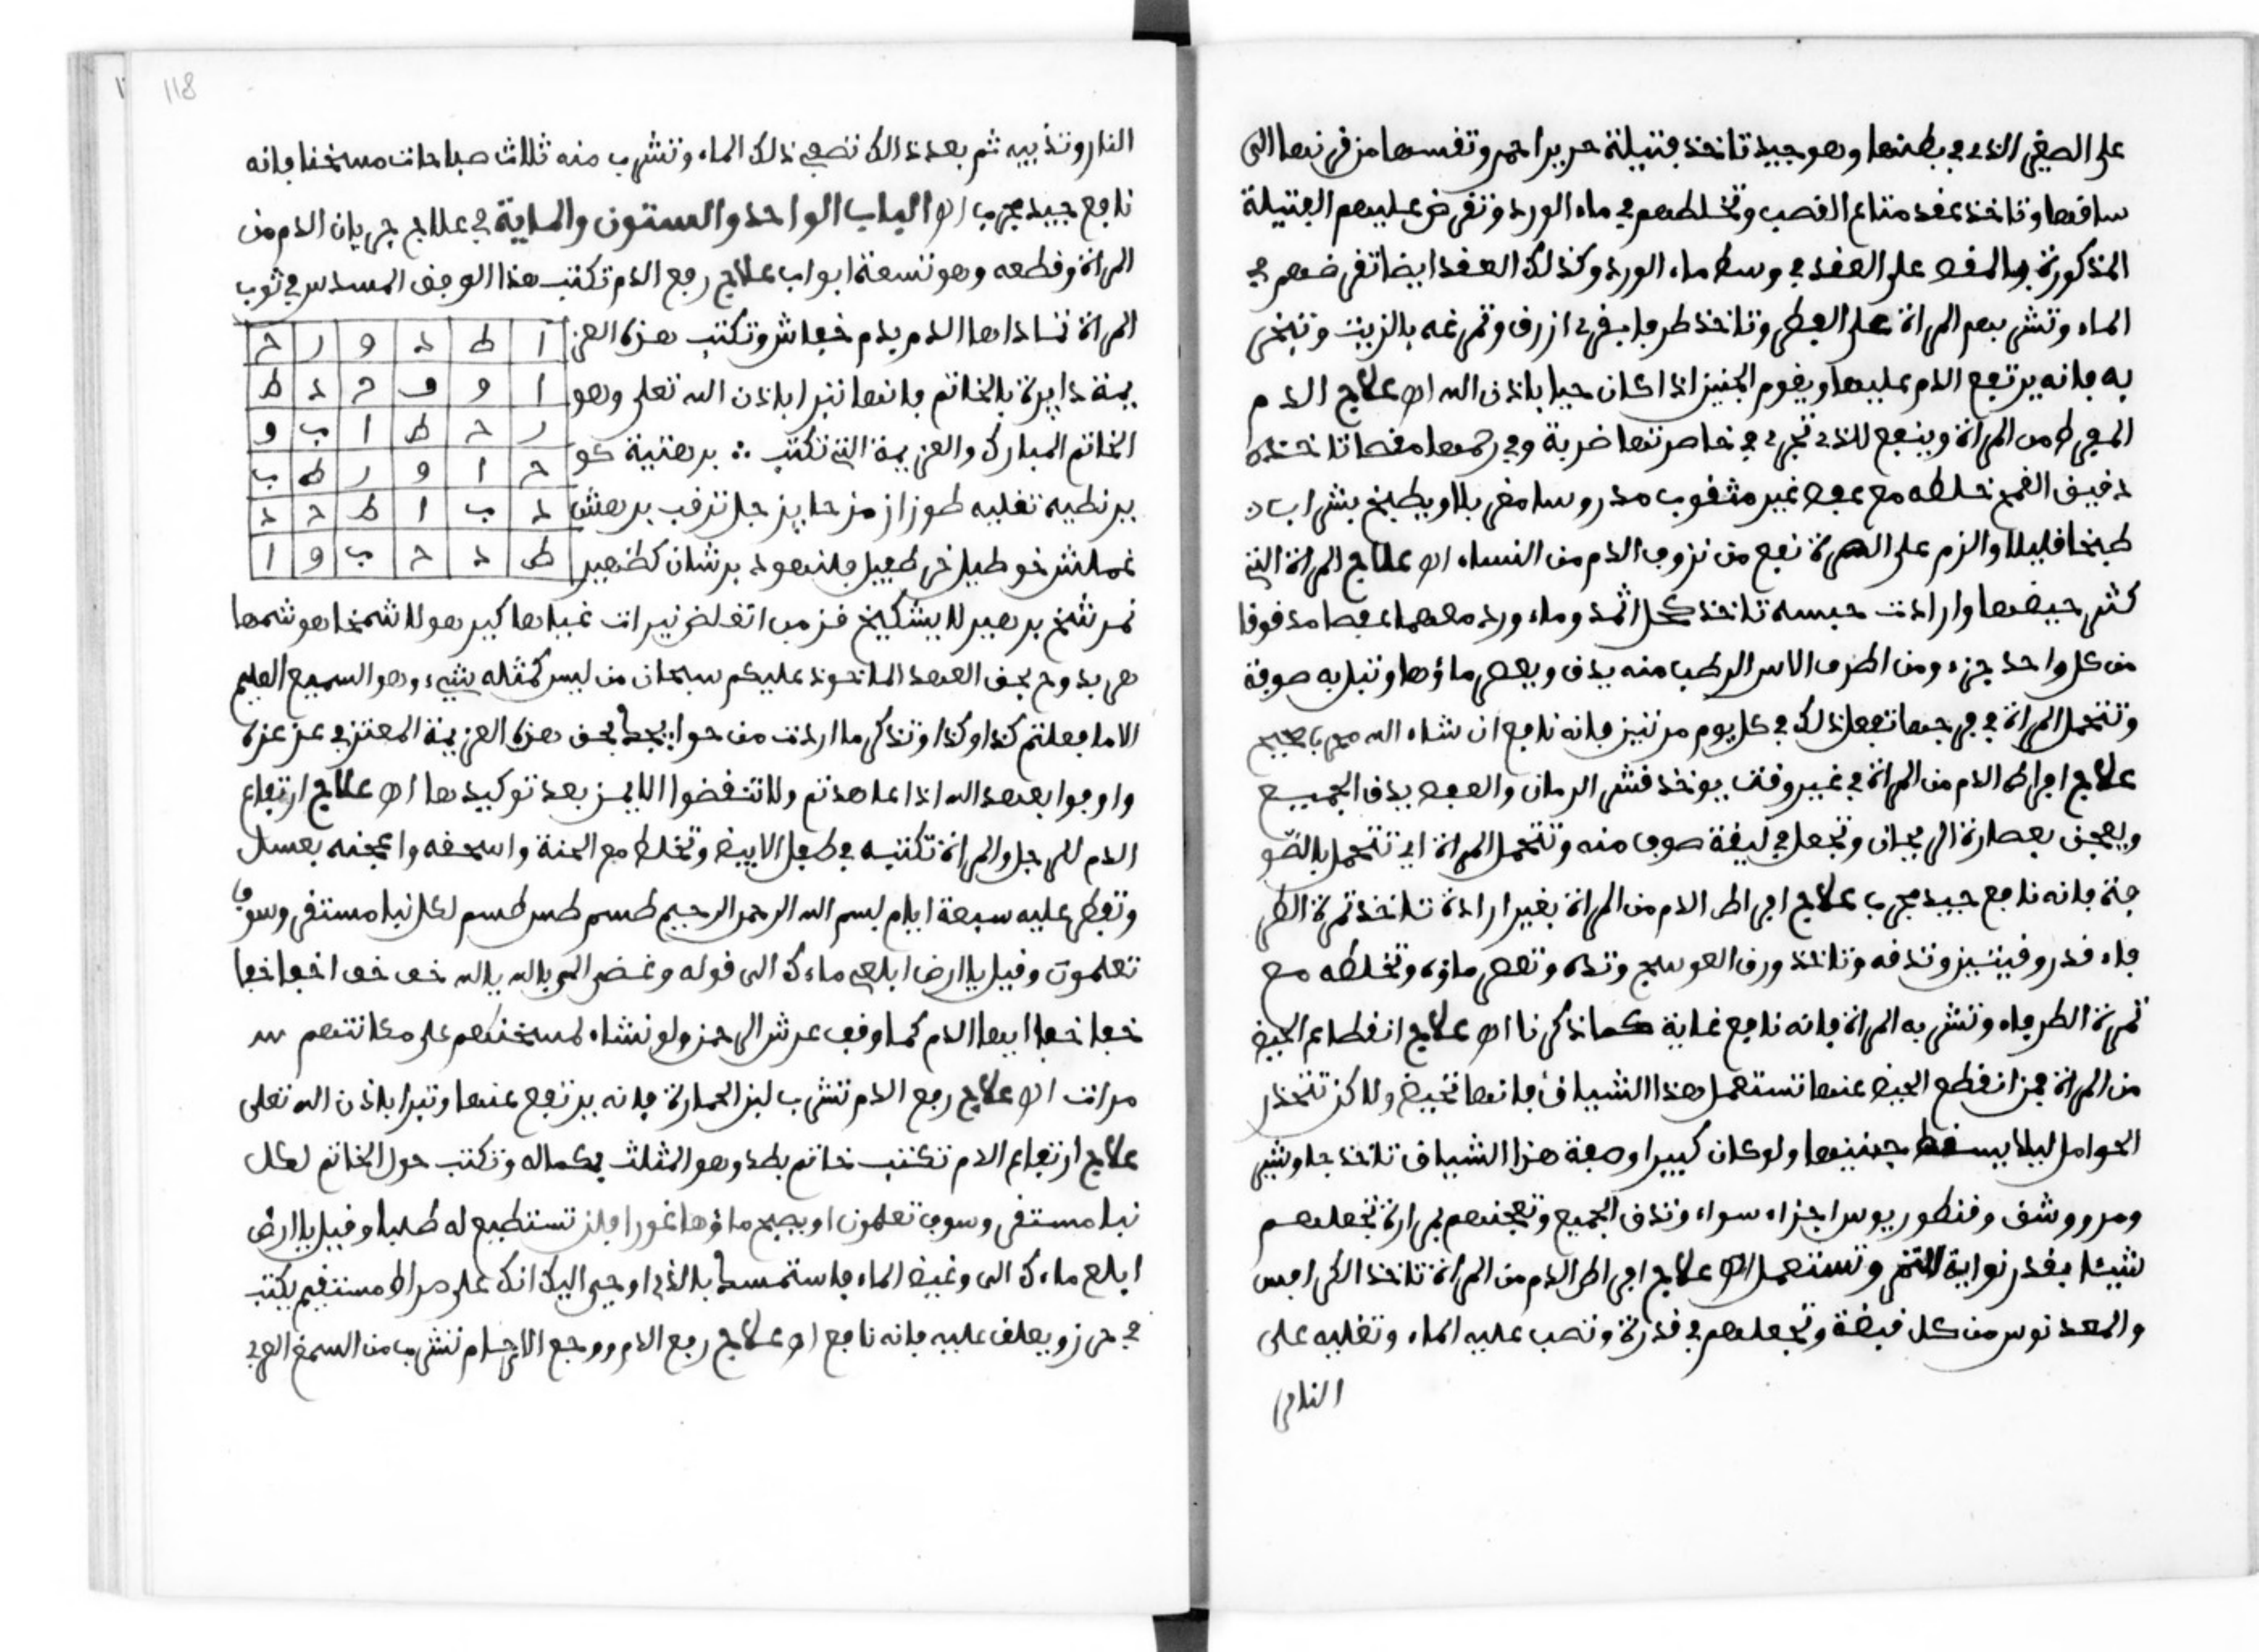 على الصغير الذي في بطنها وهو جيد تاخذ فتيلة حرير احمر وتفسها من قرنها الى
ساقها وتاخذ عقد متاع القصب وتخلطهم في ماء الورد وتقرض عليهم الفتيلة
المذكورة بالمقص على العقد في وسط ماء الورد وكذلك العقد ايضا تقرضهم في
الماء وتشربهم المراة على الفطر وتاخذ طرف بقري ازرق وتمرغه بالزيت وتبخر
به فانه يرتفع الدم عليها ويقوم الجنين اذا كان حيا باذن الله اه علاج الدم
المفرط من المراة وينفع للذي تجري في خاصرتها ضربة وفي رحمها مغصا تاخذ
دقيق القمح خلطه مع عفص غير مثقوب مدروسا مغربلا ويطبخ بشراب
طبخا قليلا والزم على السرة نفع من نزوف الدم من النساء اه علاج المراة التي
كثر حيضها وارادت حبسه تاخذ كحل اثمد وماء ورد معهما عفصا مدقوقا
من كل واحد جزء ومن اطرف الاس الرطب منه يدق ويعصر ماؤها وتبل به صوفة
وتتحمل المراة في فرجها تفعل ذلك في كل يوم مرتين فانه نافع ان شاء الله مجرب صحيح
علاج افراط الدم من المراة في غير وقت يوخذ قشر الرمان والعفص يدق الجميع
ويعجن بعصارة الريحان وتجعل في ليفة صوف منه وتتحمل المراة اي تتحمل بالصو
فة فانه نافع جيد مجرب علاج افراط الدم من المراة بغير ارادة تاخذ ثمرة الطر
فاء قدر وقيتين وتدقه وتاخذ ورق العوسج وتدقه وتعصر ماؤه وتخلطه مع
ثمرة الطرفاء وتشربه المراة فانه نافع غاية كما ذكرنا اه علاج انقطاع الحيض
من المراة فمن انقطع الحيض عنها تستعمل هذا الشياف فانها تحيض ولاكن تتحذر
الحوامل ليلا يسقط جنينها ولو كان كبيرا وصفة هذا الشياف تاخذ جاوشير
ومر ووشق وقنطوريوس اجزاء سواء وتدق الجميع وتعجنهم بمرارة تجعلهم
شيئا بقدر نواية التمر وتستعمل اه علاج افراط الدم من المراة تاخذ الكرافس
والمعدنوس من كل قبضة وتجعلهم في قدرة وتصب عليه الماء وتغليه على
النار
118
النار وتذيبه ثم بعد ذالك تصفي ذلك الماء وتشرب منه ثلاث صباحات مسخنا فانه
نافع جيد مجرب اه الباب الواحد والستون والماية في علاج جريان الدم من
المراة وقطعه وهو تسعة ابواب علاج رفع الدم تكتب هذا الوفق المسدس في ثوب
المراة تساداها الدم يدم خفاش وتكتب هذه العز
يمة دايرة بالخاتم فانها تبرا باذن الله تعلى وهو
الخاتم المبارك والعزيمة التي تكتب ∴ برهتية كو
ير تطيه تغليه طوران مزجل بزجل ترقب برهش
غملش خوطير قلنهود برشان كظهير
ا ط د و ر ح
ا و و ح د ط
ر ح ط ا ب و
ح ا و ر ط ب
د ب ا ط ح د
ط د ح ب و ا
نمرشخ برهيولا بشكيلخ قزمز انغلغ نيرات غياها كيرهولا شمخاهر شمها
هر بدوح بحق العهد الماخوذ عليكم سبحان من ليس كمثله شيء وهو السميع العليم
الا ما فعلتم كذا وكذا وتذكر ما اردت من حوايجك بحق هذه العزيمة المعتز في عز عزه
واوفوا بعهد الله اذا عاهدتم ولا تنقضوا الايمن بعد توكيدها اه علاج ارتفاع
الدم للرجل والمراة تكتبه في طفل الابيض وتخلط مع الحنة واسحقه واعجنه بعسل
وتفطر عليه سبعة ايام بسم الله الرحمن الرحيم طسم طس طسم لكل نبا مستقر وسوف
تعلمون وقيل يا ارض ابلعي ماءك الى قوله وغض الامر يا الله يا الله خف خف اخفا خفا
خفا خفا ايها الدم كما وقف عرش الرحمن ولو نشاء لمسخنهم على مكانتهم
مرات اه علاج رفع الدم تشرب لبن الحمارة فانه يرتفع عنها وتبرا باذن الله تعلى
علاج ارتفاع الدم تكتب خاتم بطد وهو المثلث بكماله وتكتب حول الخاتم لكل
نبا مستقر وسوف تعلمون او يصبح ماؤها غورا فلن تستطيع له طلبا وقيل يا ارض
ابلع ماءك الى وغيض الماء فاستمسك بالذي اوحي اليك انك على صراط مستقيم يكتب
في حرز ويعلق عليه فانه نافع اه علاج رفع الدم ووجع الارحام تشرب من السمغ العربي